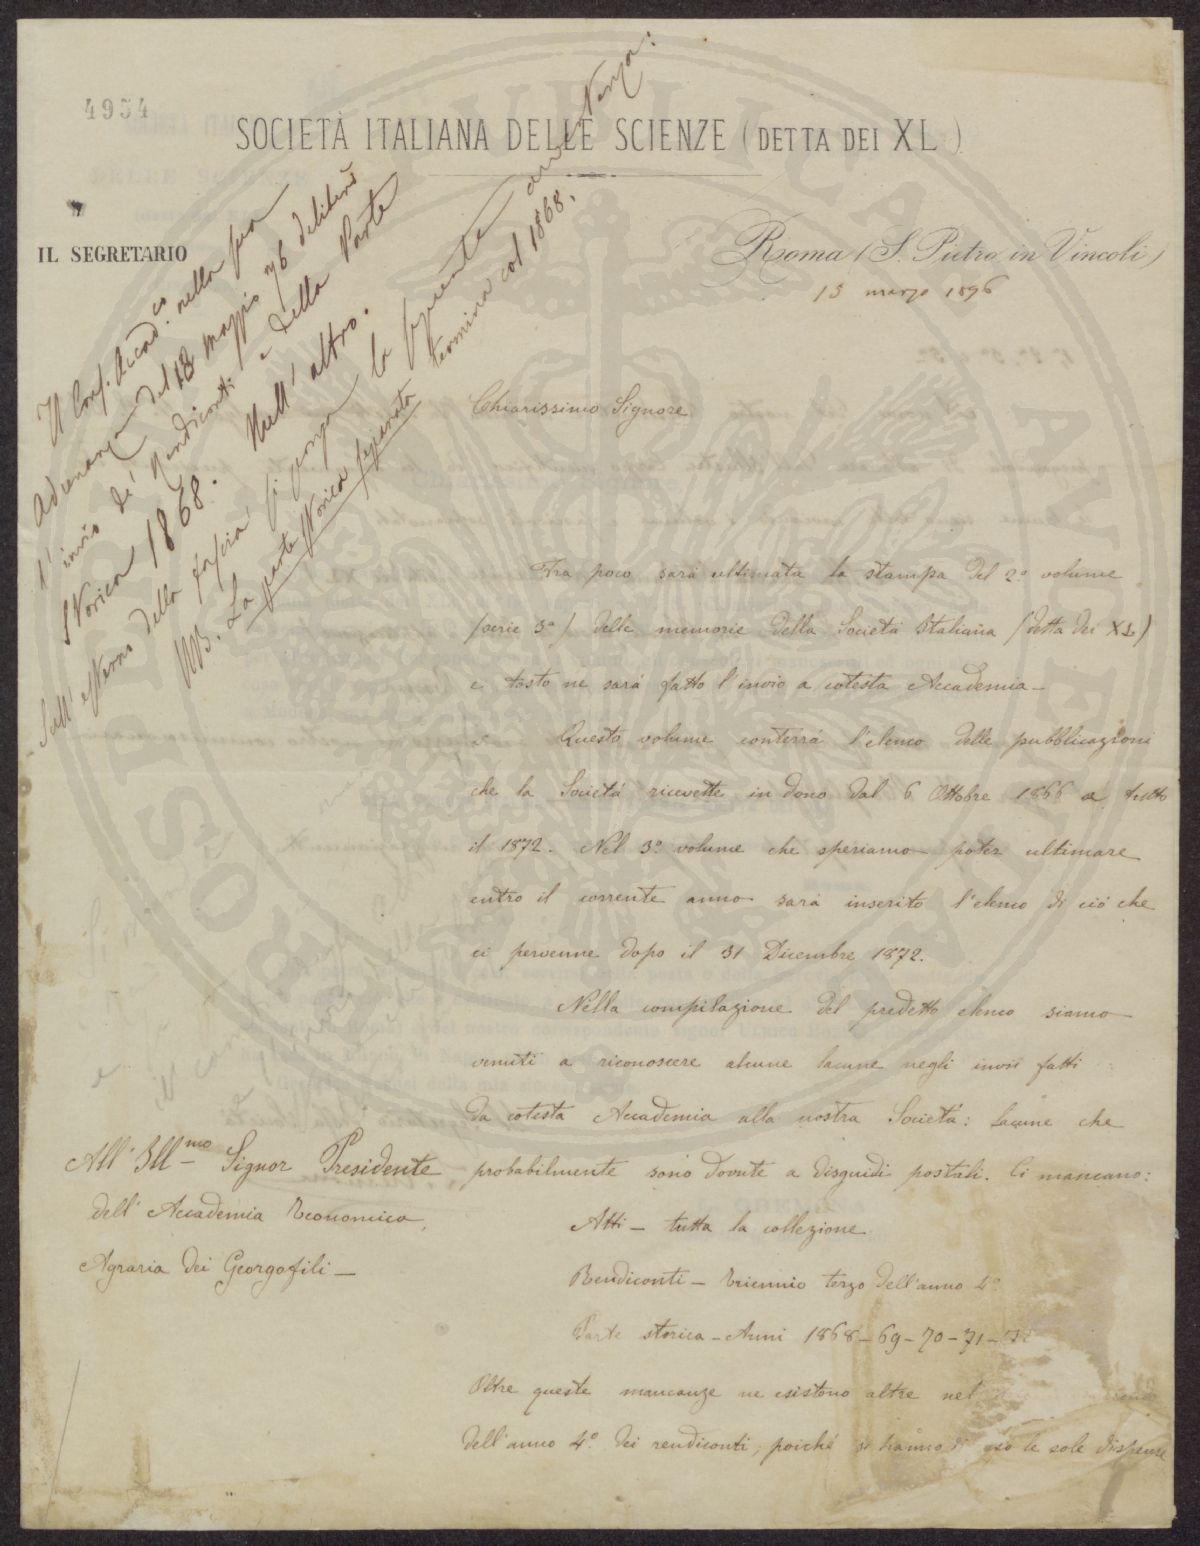 4954
SOCIETÀ ITALIANA DELLE SCIENZE (DETTA DEI XL)
IL SEGRETARIO
Roma (S. Pietro in Vincoli)
13 marzo 1896
Il Conf. Accad.co nella sua
Adunanza del 18 maggio 76 deliberò
l'invio de' Rendiconti e della Parte
Storica 1868. Null' altro.
Sull' esterno della fascia si ponga la seguente avvertenza:
NB. La parte Storica separata termina col 1868.
Chiarissimo Signore
Fra poco sarà ultimata la stampa del 2.o volume
(serie 3a) delle memorie della Società Italiana (detta dei XL)
e tosto ne sarà fatto l'invio a cotesta Accademia_
Questo volume conterrà l'elenco delle pubblicazioni
che la Società ricevette in dono dal 6 Ottobre 1866 a tutto
il 1872. Nel 3o volume che speriamo poter ultimare
entro il corrente anno sarà inserito l'elenco di ciò che
ci pervenne dopo il 31 Dicembre 1872.
Nella compilazione del predetto elenco siamo
venuti a riconoscere alcune lacune negli invii fatti
da cotesta Accademia alla nostra Società: lacune che
probabilmente sono dovute a disguidi postali. Ci mancano:
Atti _ tutta la collezione
Rendiconti _ triennio terzo dell'anno 4o
Parte storica _ Anni 1868_69_70_71_
Oltre queste mancanze ne esistono altre nel
dell'anno 4o dei rendiconti, poichè si hanno le sole dispense
All' Ill.mo Signor Presidente
dell' Accademia Economico
Agraria dei Georgofili _